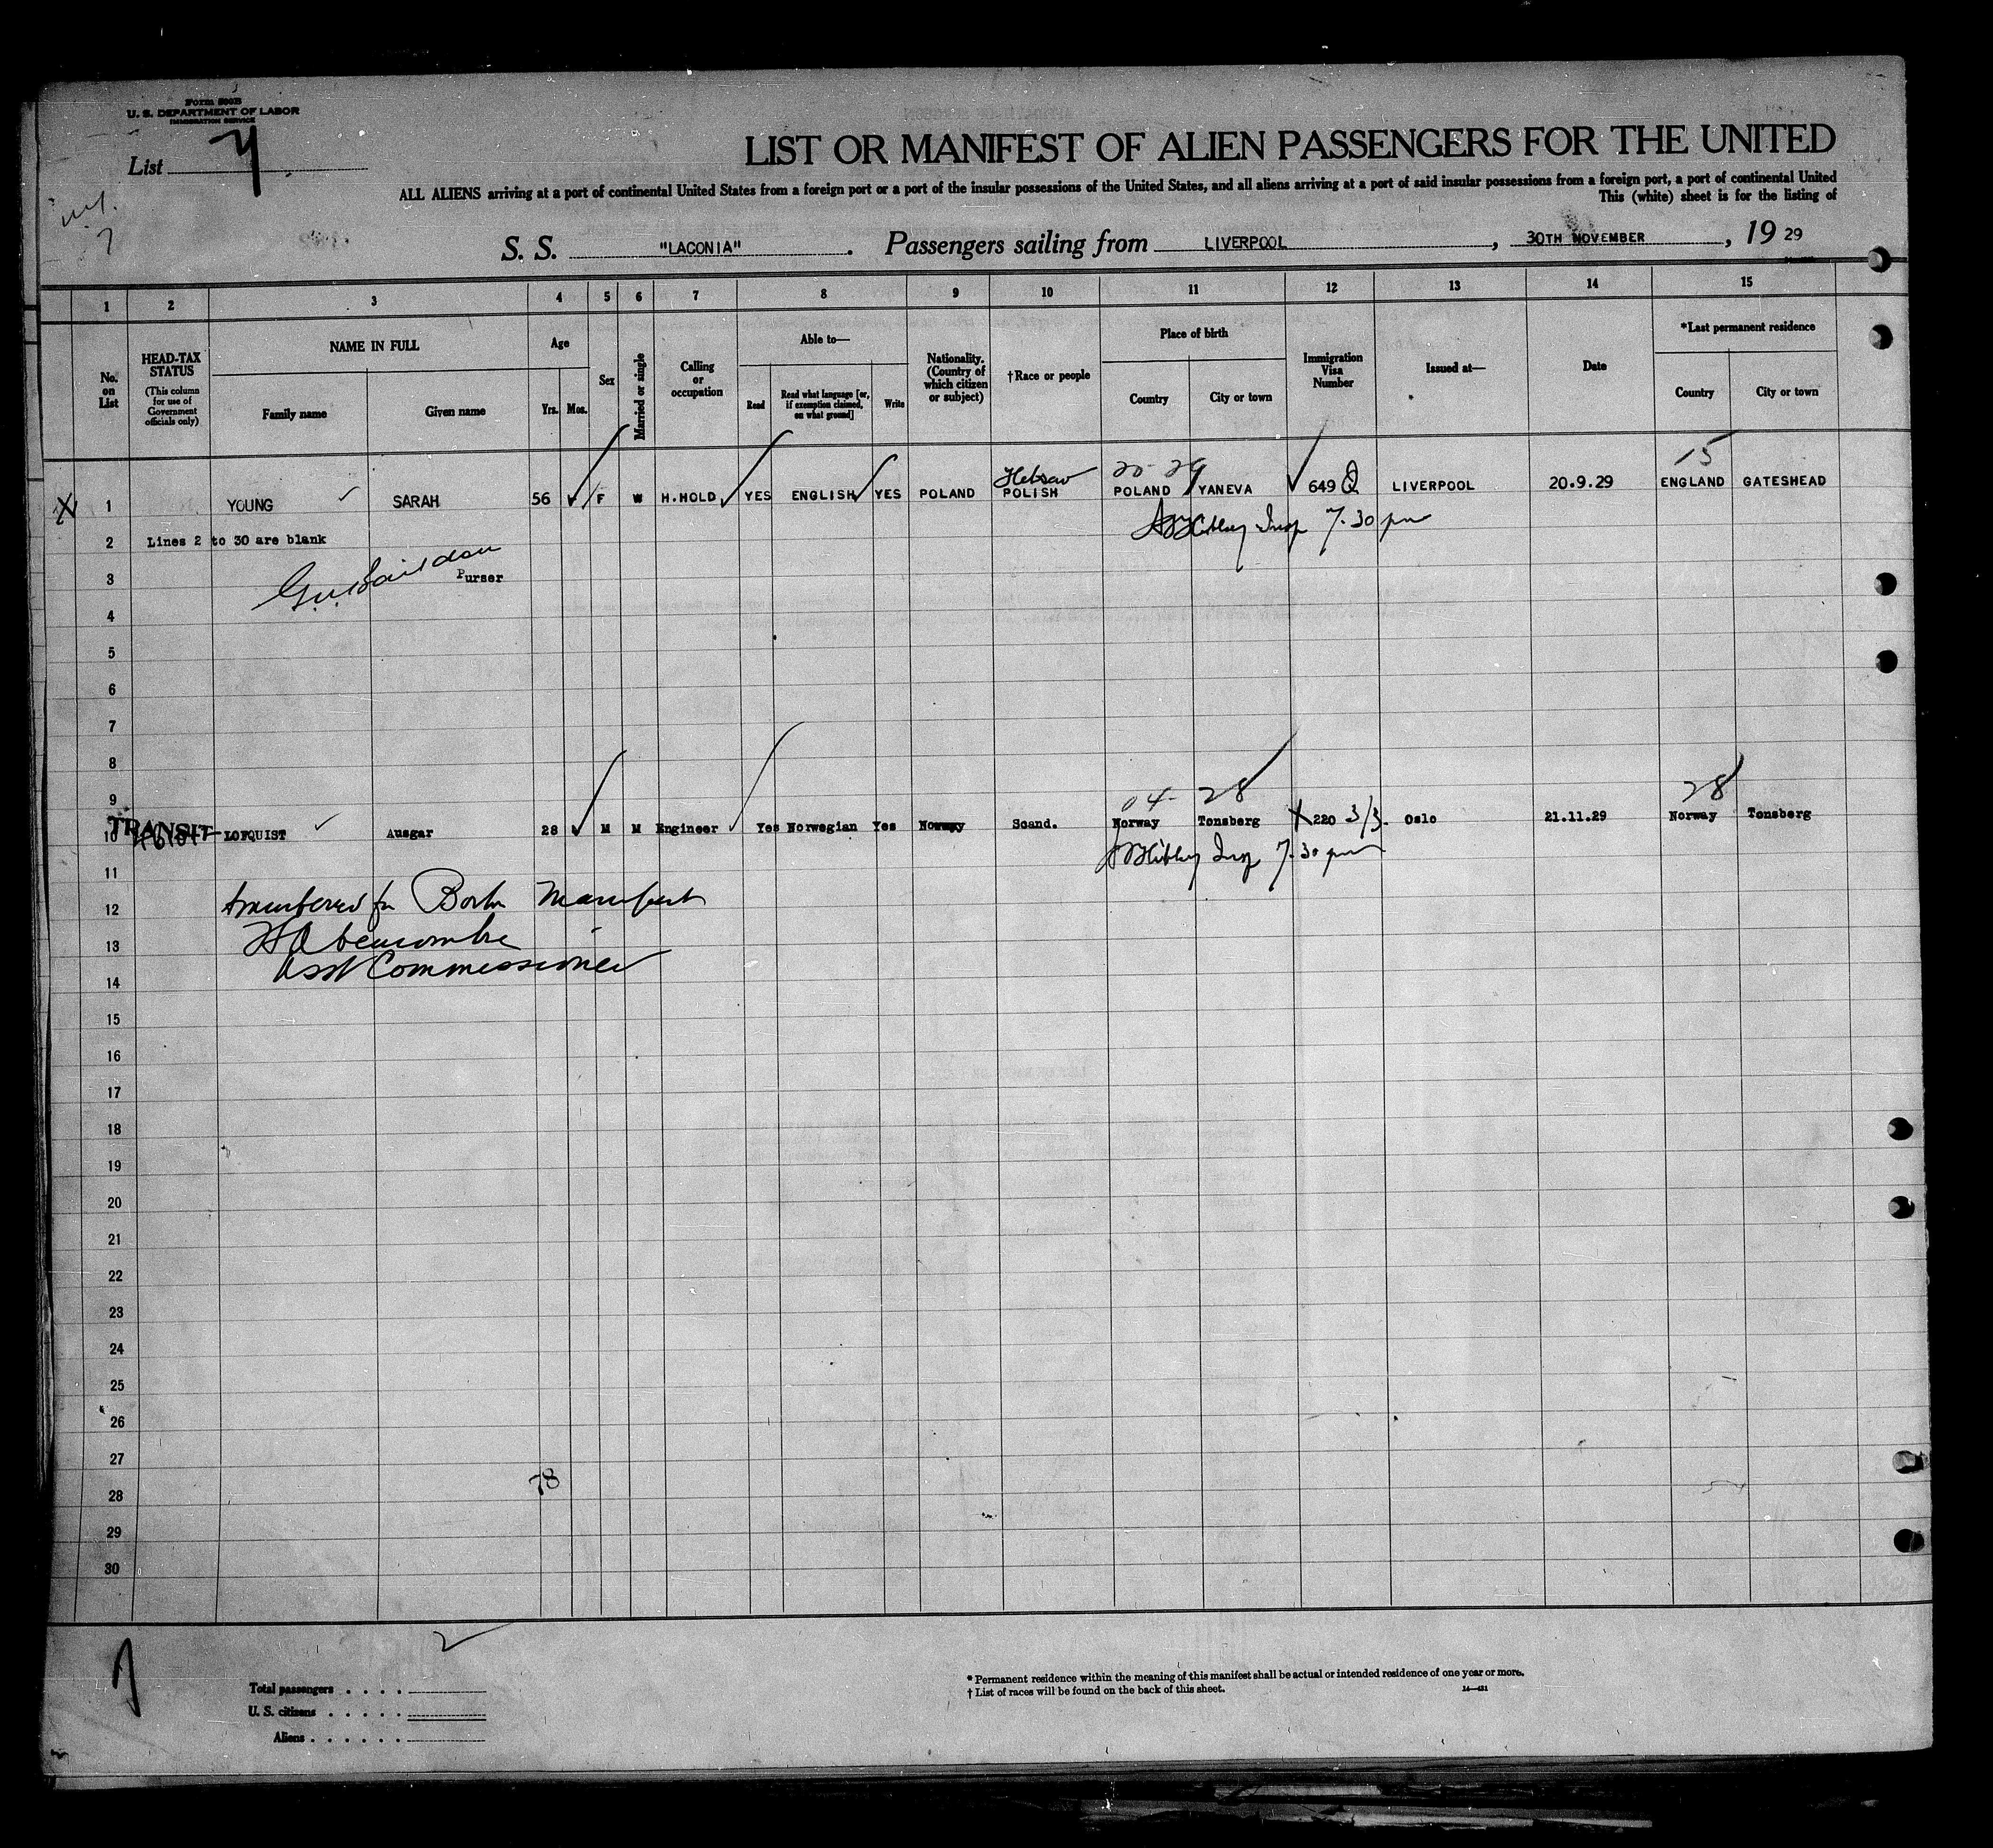 Form 500B
U. S. DEPARTMENT OF LABOR
IMMIGRATION SERVICE
List
LIST OR MANIFEST OF ALIEN PASSENGERS FOR THE UNITED
ALL ALIENS arriving at a port of continental United States from a foreign port or a port of the insular possessions of the United States, and all aliens arriving at a port of said insular possessions from a foreign port, a port of continental United
This (white) sheet is for the listing of
S. S. "LACONIA". Passengers sailing from LIVERPOOL, 30TH NOVEMBER, 19 29
1 2 3 4 5 6 7 8 9 10 11 12 13 14 15
No. on List
HEAD-TAX STATUS (This column for use of Government officials only)
NAME IN FULL
Family name
Given name
Age
Yrs. Mos.
Sex
Married or single
Calling or occupation
Able to—
Read
Read what language [or, if exemption claimed, on what ground]
Write
Nationality. (Country of which citizen or subject)
†Race or people
Place of birth
Country
City or town
Immigration Visa Number
Issued at—
Date
*Last permanent residence
Country
City or town
Hebrew 20 29 15
1 YOUNG SARAH 56 F W H.HOLD YES ENGLISH YES POLAND POLISH POLAND YANEVA 649 Q LIVERPOOL 20.9.29 ENGLAND GATESHEAD
Insp 7.30 pm
2 Lines 2 to 30 are blank
3 Purser
4
5
6
7
8
9
04 28 28
TRANSIT
10 LOFQUIST Ausgar 28 M M Engineer Yes Norwegian Yes Norway Scand. Norway Tonsberg 220 3/3. Oslo 21.11.29 Norway Tonsberg
Insp 7.30 pm
11
12 Manifest
13
Asst Commissioner
14
15
16
17
18
19
20
21
22
23
24
25
26
27
78
28
29
30
2
Total passengers
U. S. citizens
Aliens
* Permanent residence within the meaning of this manifest shall be actual or intended residence of one year or more.
† List of races will be found on the back of this sheet.
14—431